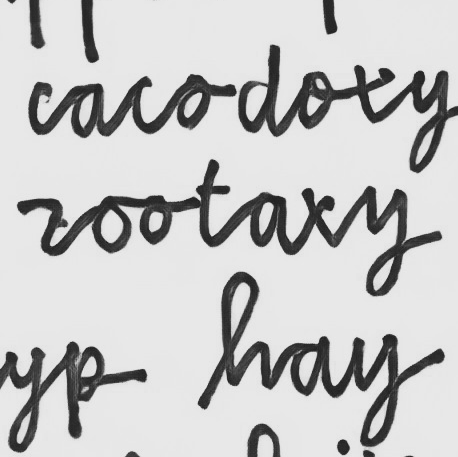 cacodoxy
zootaxy
yp hay